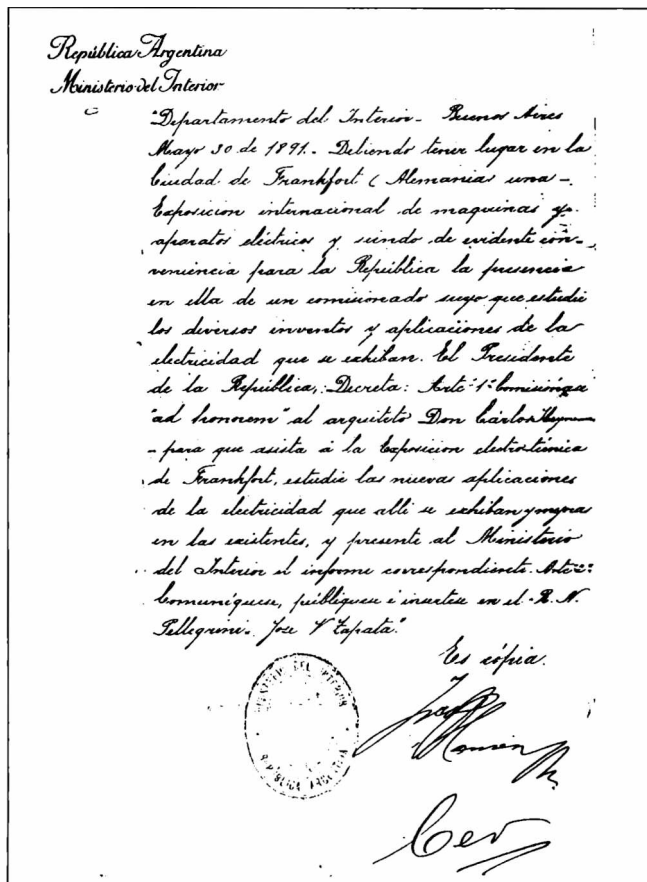 República Argentina
Ministerio del Interior
"Departamento del Interior - Buenos Aires
Mayo 30 de 1891. - Debiendo tener lugar en la
Ciudad de Frankfort (Alemania una -
Exposicion internacional de maquinas y
aparatos eléctricos y siendo de evidente con-
veniencia para la República la presencia
en ella de un comisionado suyo que estudie
los diversos inventos y aplicaciones de la
electricidad que se exhiban. El Presidente
de la República, Decreta: Arte 1º Comisiónase
"ad honorem" al arquiteto Don Cárlos
- para que asista á la Exposicion electrotécnica
de Frankfort, estudie las nuevas aplicaciones
de la electricidad que allí se exhiban y mejoras
en las existentes, y presente al Ministerio
del Interior el informe correspondiente. Arte 2º
Comuníquese, públiquese é insertese en el R. N.
Pellegrini. Jose V Zapata."
Es cópia.
MINISTERIO DEL INTERIOR
REPÚBLICA ARGENTINA